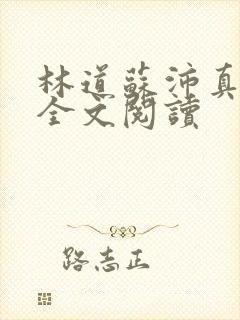 林道蘇沛真
全文閱讀
路志正